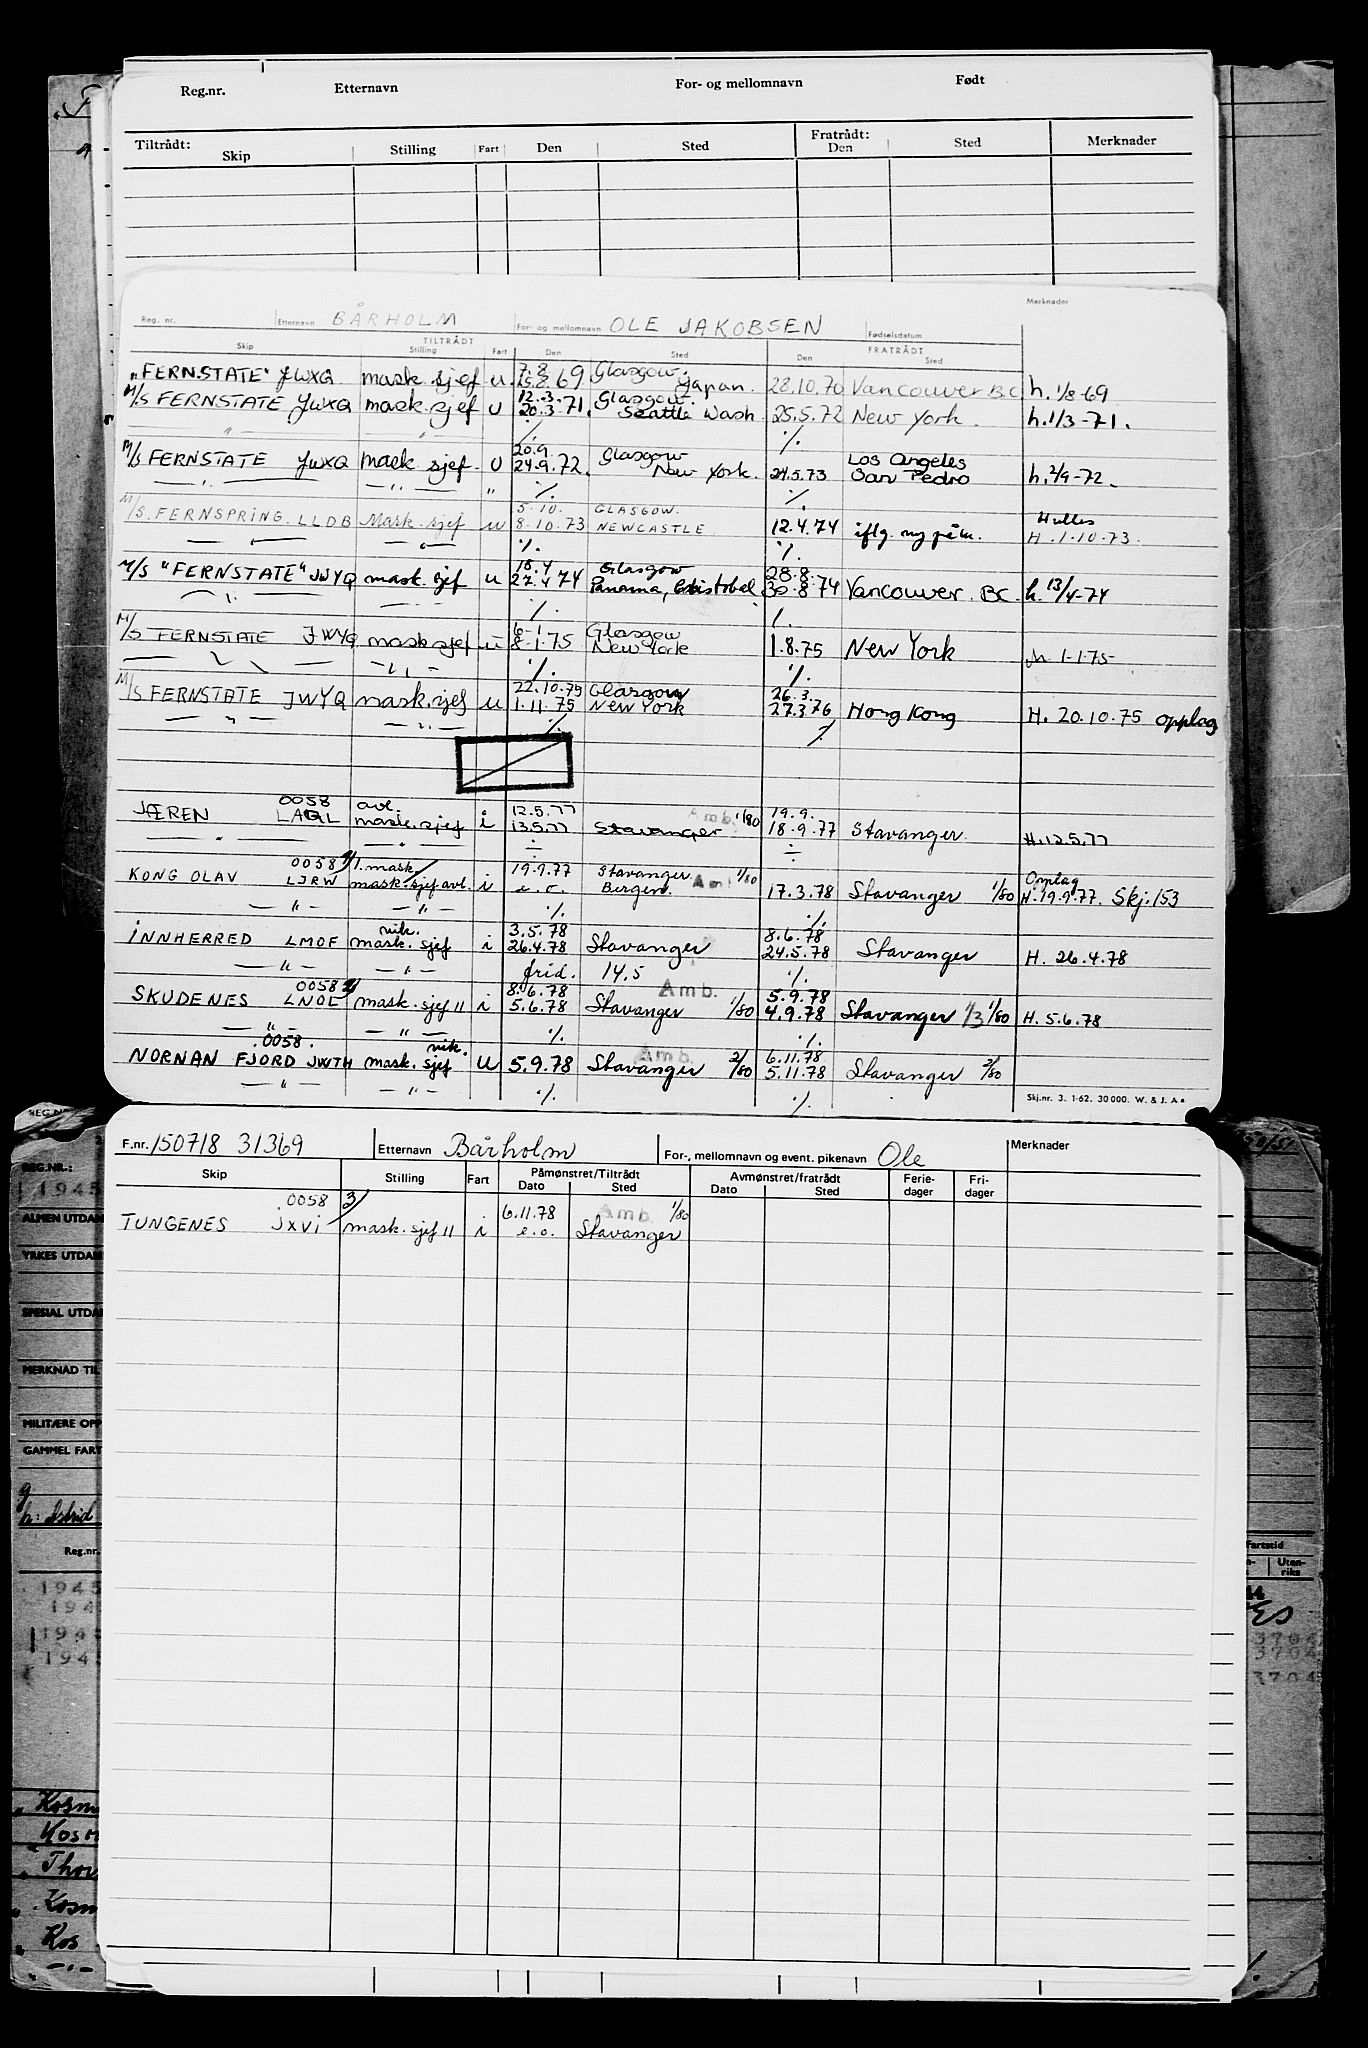 Reg.nr. Etternavn For- og mellomnavn Født
Tiltrådt: Fratrådt:
Skip Stilling Fart Den Sted Den Sted Merknader
Merknader
Reg. nr. Etternavn BÅRHOLM For- og mellomnavn OLE JAKOBSEN Fødselsdatum
TILTRÅDT FRATRÅDT
Skip Stilling Fart Den Sted Den Sted
7.8. Glasgow.
"FERNSTATE" JWXQ mask. sjef u. 25.8.69 Japan. 28.10.70 Vancouver B.C. h. 1/8-69
12.3. Glasgow.
M/S FERNSTATE JWXQ mask sjef u 20.3.71. Seattle Wash. 25.5.72 New York. h. 1/3-71.
" " ./. ./.
20.9. Glasgow Los Angeles
M/S FERNSTATE JWXQ mask sjef. U 24.9.72. New York. 24.5.73 San Pedro h. 2/9-72.
— " — — " — " ./. ./.
5.10. GLASGOW. Hulles
M/S. FERNSPRING. LLDB Mask. sjef u 8.10.73 NEWCASTLE 12.4.74 iflg. ny påm. H. 1.10.73.
— " — — " — ./. ./.
18.4 Glasgow 28.8.
M/S "FERNSTATE" JWYQ mask. sjef u 27.4 74 Panama, Cristobal 30.8.74 Vancouver. BC. h. 13/4-74
— " — — " — ./. ./.
6-1. Glasgow
M/S FERNSTATE JWYQ mask sjef u 8.1.75 New York 1.8.75 New York h 1-1-75
— " — — " — ./. ./.
22.10.75 Glasgow 26.3.
M/S FERNSTATE JWYQ mask. sjef u 1.11.75 New York 27.3.76 Hong Kong H. 20.10.75 opplag
— " — — " — ./. ./.
0058 avl. 12.5.77 Amb. 1/80 19.9.
JÆREN LAQL mask. sjef i 13.5.77 Stavanger 18.9.77 Stavanger. H. 12.5.77
— " — — " — ÷ ÷
0058 2/ 1. mask/ 19.9.77 Stavanger. 1/80 Opplag
KONG OLAV LJRW mask. sjef avl. i e.o. Bergen. Amb 17.3.78 Stavanger 1/80 H. 19.9.77. Skj. 153
— " — — " — ./. ./.
vik. 3.5.78 8.6.78
INNHERRED LMOF mask. sjef i 26.4.78 Stavanger 24.5.78 Stavanger H. 26.4.78
— " — — " — frid. 14.5 ./.
0058 2/ 8.6.78 Amb. 5.9.78
SKUDENES LNOL mask. sjef 11 i 5.6.78 Stavanger 1/80 4.9.78 Stavanger 1/3 1/80 H. 5.6.78
— " — — " — ./. ./.
.0058. vik. Amb. 6.11.78
NORNAN FJORD JWTH mask. sjef U 5.9.78 Stavanger 2/80 5.11.78 Stavanger 2/80
— " — — " — ./. ./.
Skj.nr. 3. 1-62. 30 000. W. & J. A s
F.nr. 150718 31369 Etternavn Bårholm For-, mellomnavn og event. pikenavn Ole Merknader
Skip Stilling Fart Påmønstret/Tiltrådt Avmønstret/fratrådt Ferie- Fri-
Dato Sted Dato Sted dager dager
0058 3/ 6.11.78 Amb. 1/80
TUNGENES JXVI mask. sjef 11 i e.o. Stavanger
REG.NR.:
1945
ALMEN UTDAN
YRKES UTDAN
SPESIAL UTDA
MERKNAD TIL
MILITÆRE OPP
GAMMEL FART
Reg.nr.
1945
194
1945
1945
Fartstid
Uten-
riks
3704
3704
3704
Kosm
Kosm
Thor
Kosm
Kos